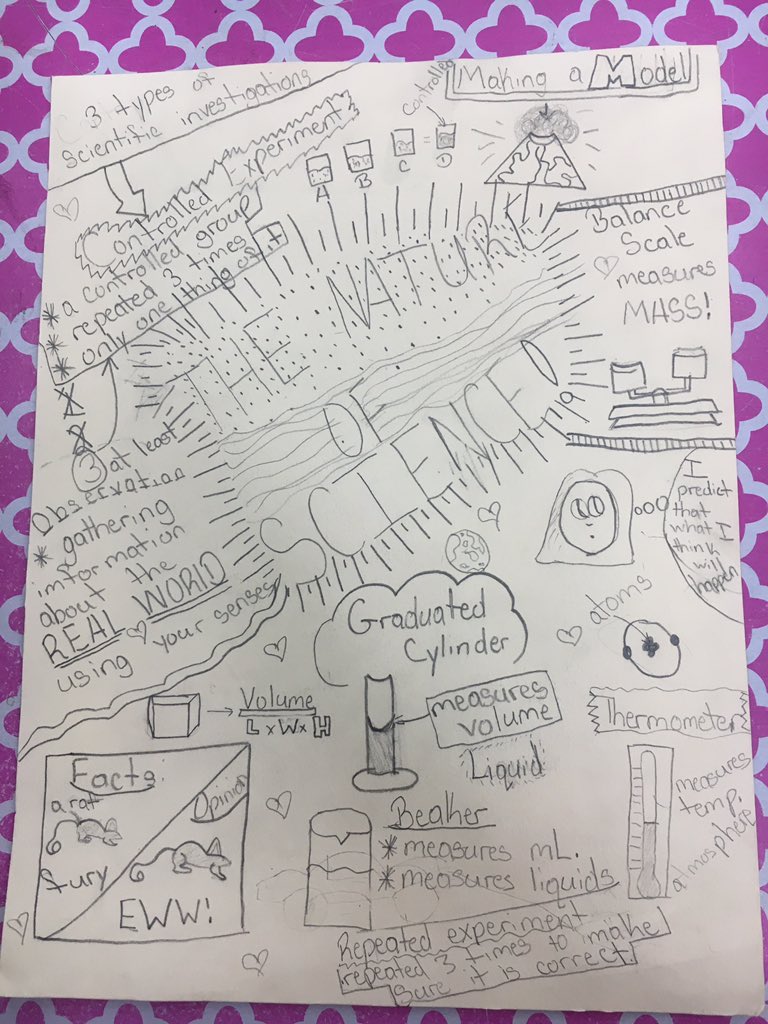 3 types of
scientific investigations
Controlled Experiment
* a controlled group
* repeated 3 times
* only one thing
1
2
3 at least
A
B
C
=
D
Controlled
Making a Model
THE NATURE
OF
SCIENCE
Balance
Scale
measures
MASS!
Observation
* gathering
imformation
about the
REAL WORLD
using your senses
I
predict
that
what I
think
will
happen
Graduated
Cylinder
measures
volume
Liquid
atoms
Volume
L x W x H
Thermometer
measures
temp.
atmosphere
Facts
a rat
fury
Opinion
EWW!
Beaker
* measures mL.
* measures liquids
Repeated experiment
repeated 3 times to make
sure it is correct.